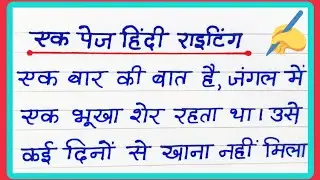 एक पेज हिंदी राइटिंग
एक बार की बात है, जंगल में
एक भूखा शेर रहता था। उसे
कई दिनों से खाना नहीं मिला